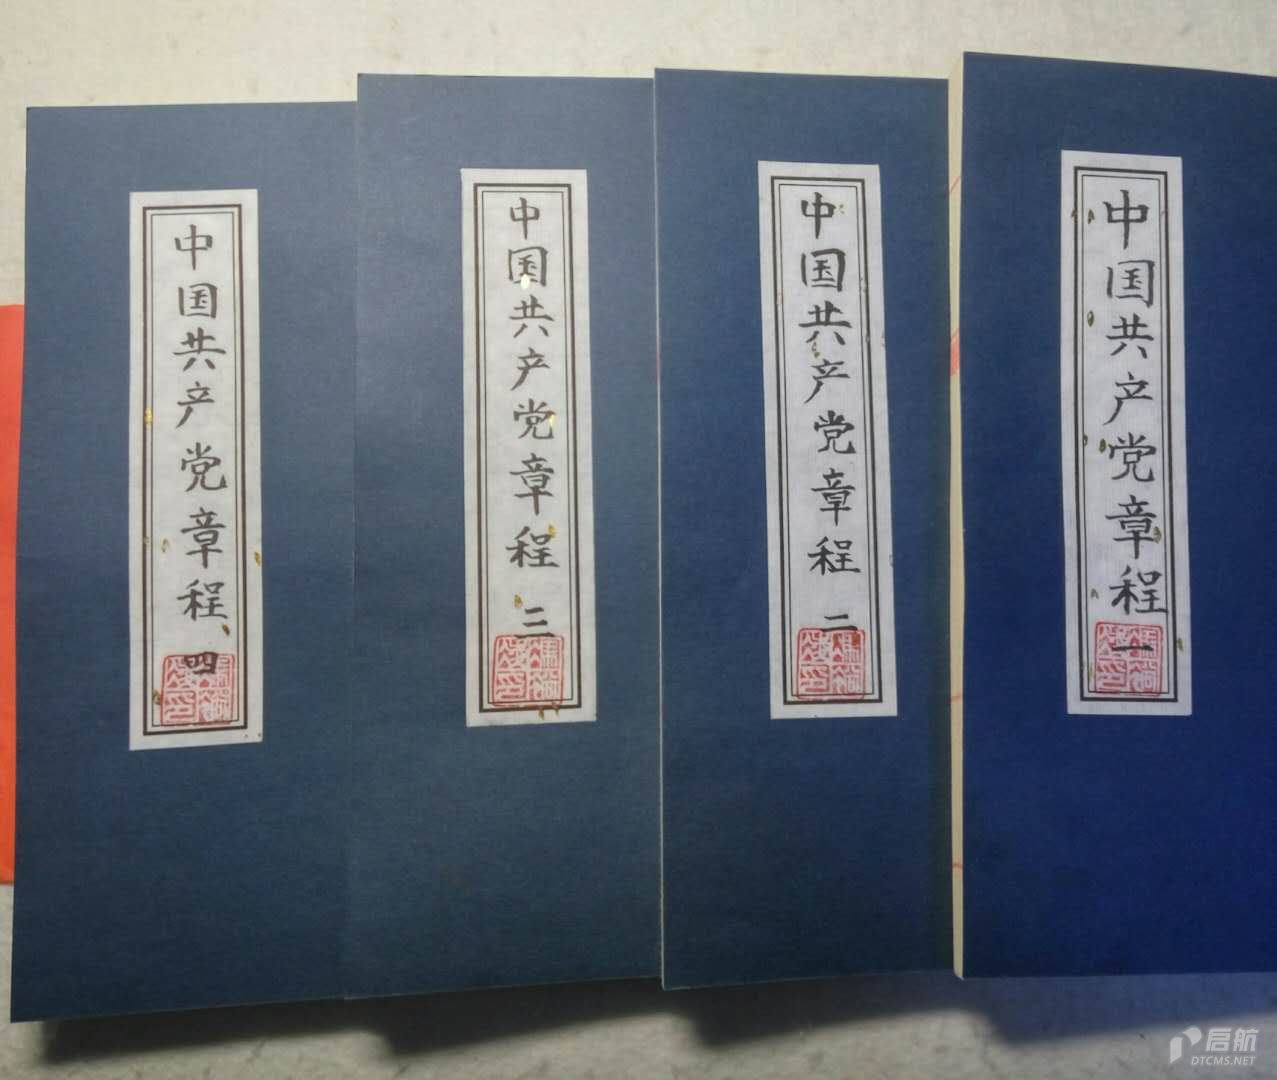 中国共产党章程 一
中国共产党章程 二
中国共产党章程 三
中国共产党章程 四
启航
DTCMS.NET